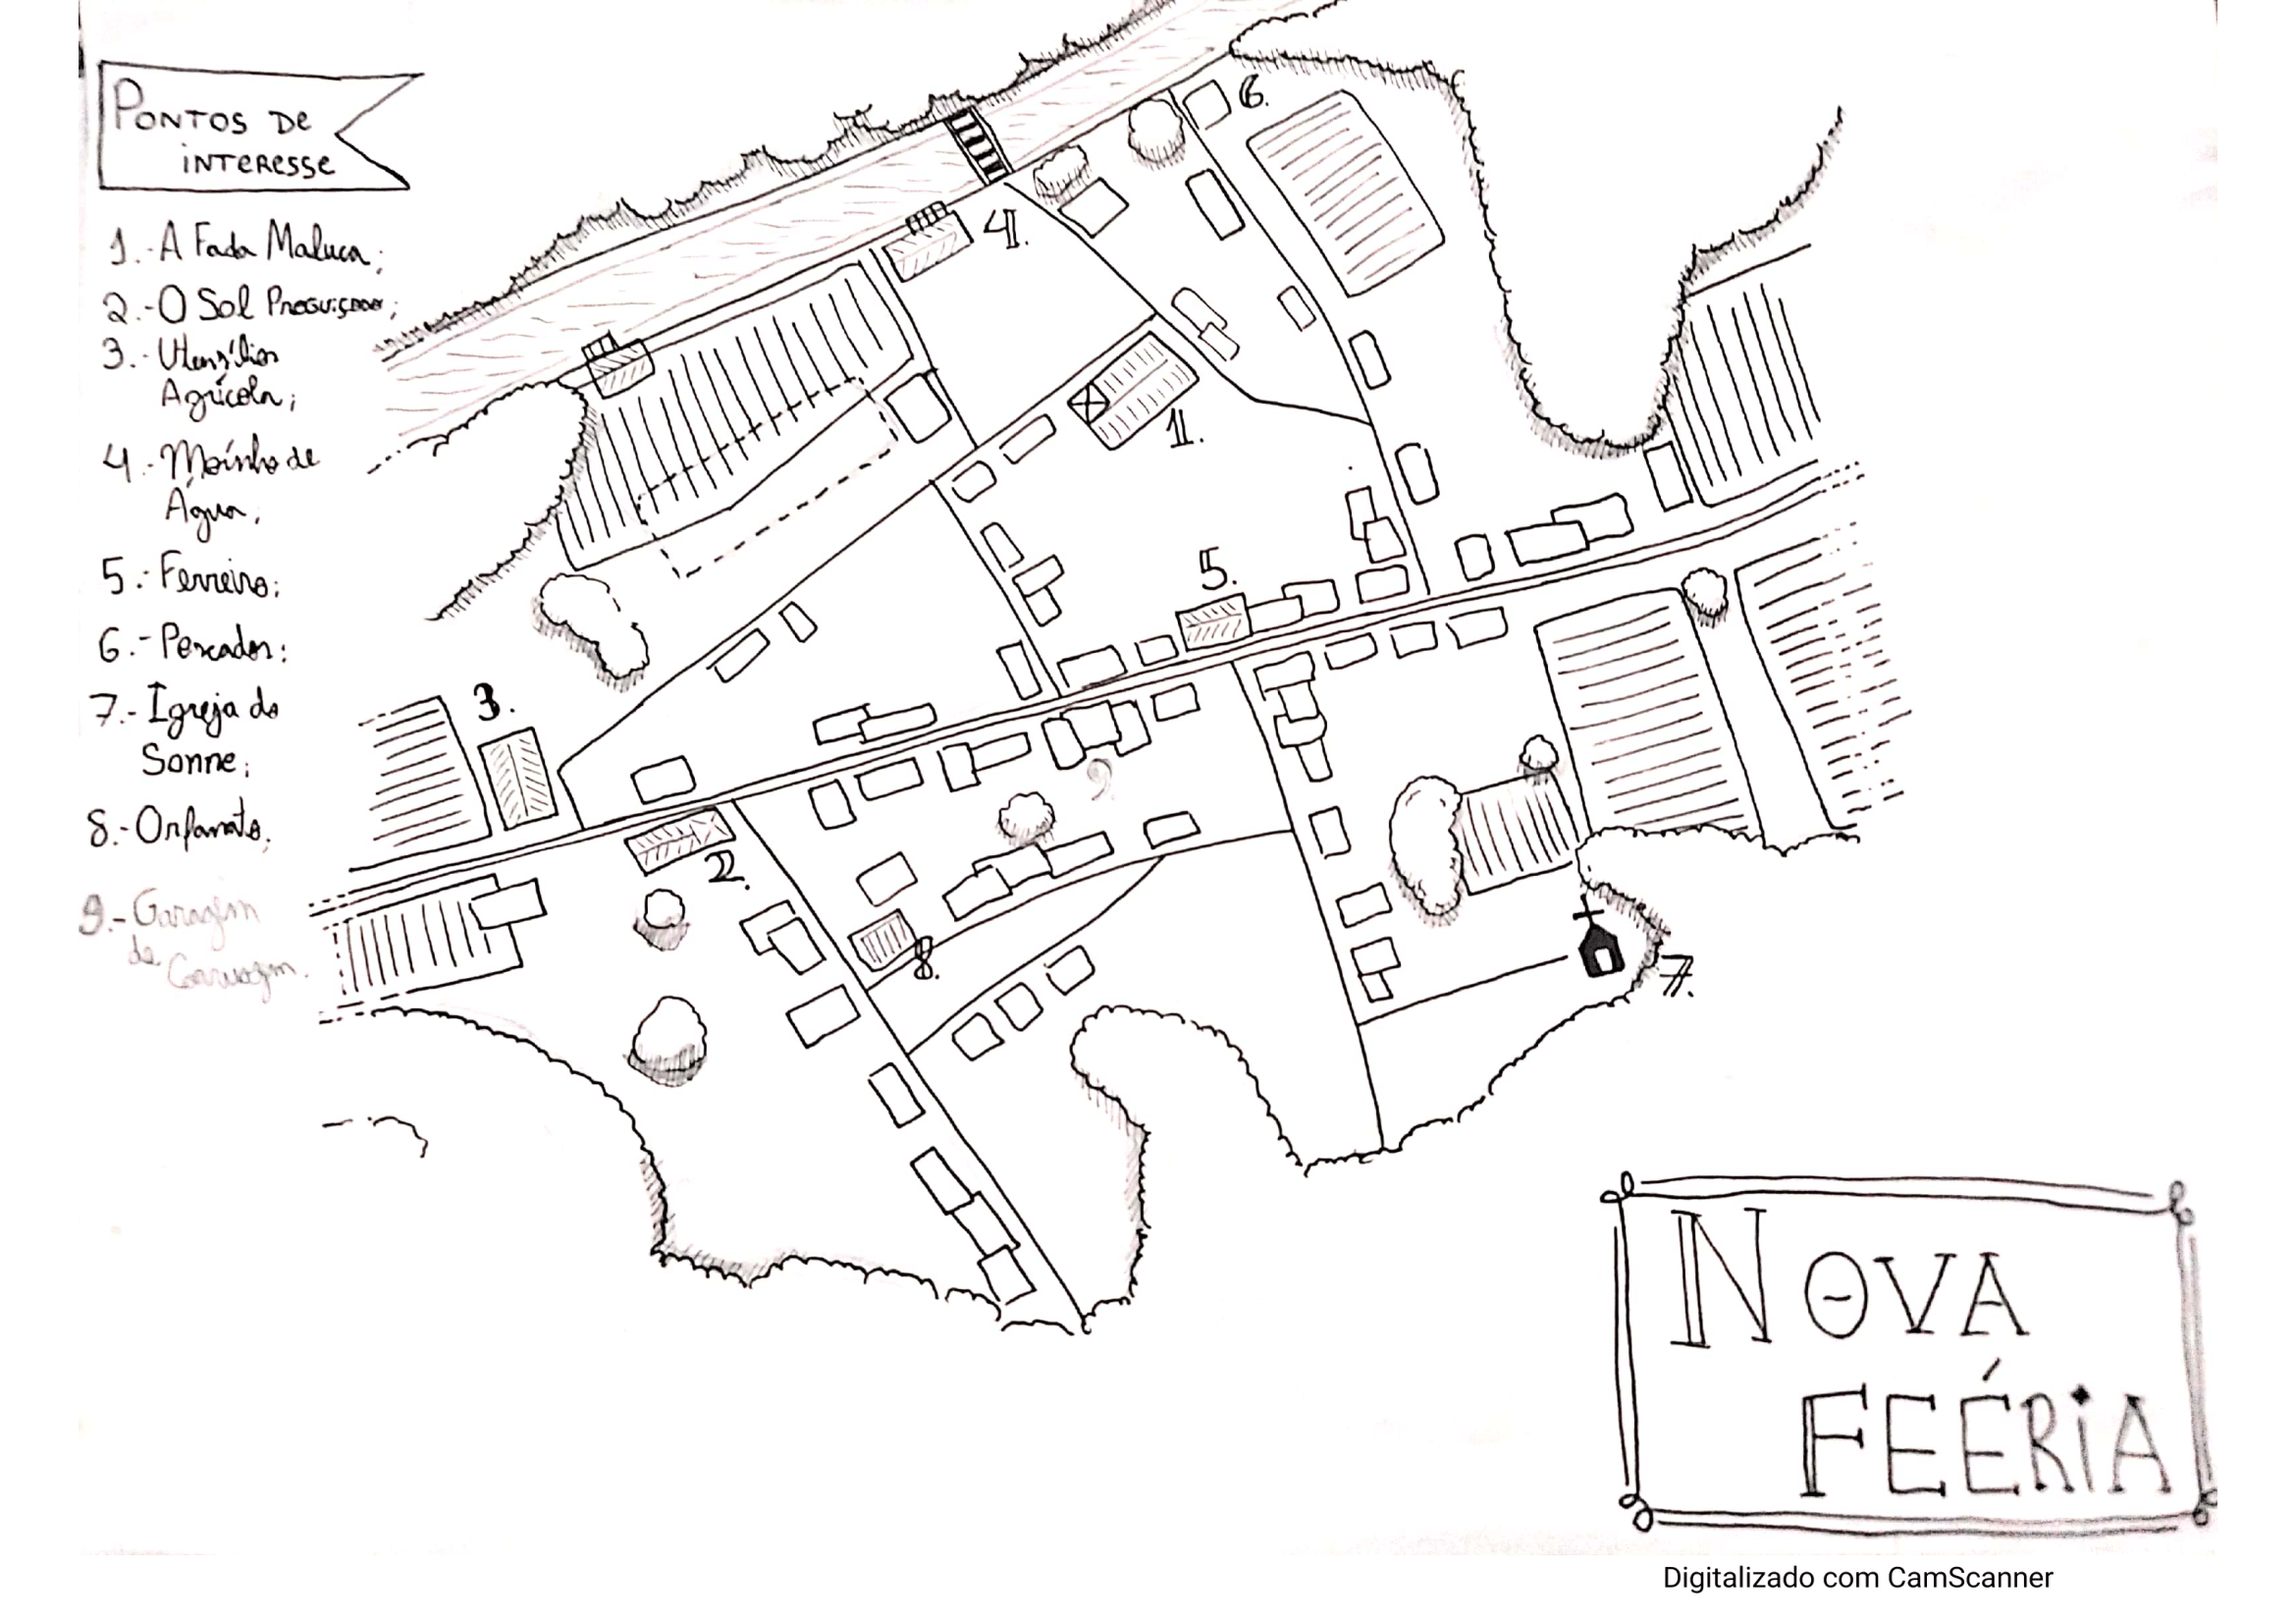 PONTOS DE
INTERESSE
1.- A Fada Maluca;
2.- O Sol Preguiçoso;
3.- Utensílios
Agrícola;
4.- Moínho de
Água;
5.- Ferreiro;
6.- Pescador:
7.- Igreja do
Sonne;
8.- Orfanato.
9.- Garagem
de
Carruagem.
6.
4.
1.
5.
3.
9.
2.
8.
7.
NOVA
FEÉRIA
Digitalizado com CamScanner